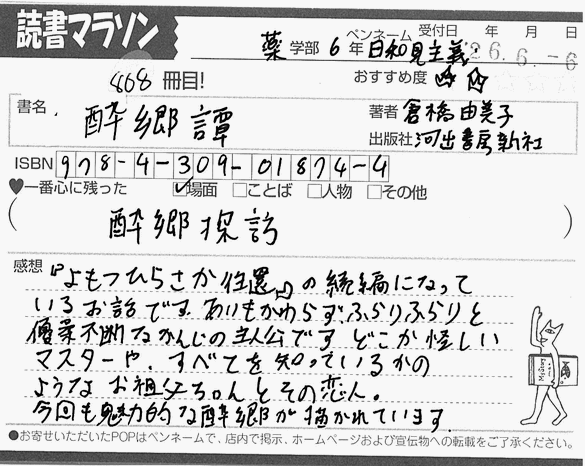 読書マラソン
薬 学部 6 年 ペンネーム 日和見主義 受付日 年 月 日
26.6.-6
868 冊目!
おすすめ度 ☆☆
書名 酔郷譚
著者 倉橋由美子
出版社 河出書房新社
ISBN 978-4-309-01874-4
♥一番心に残った ☑場面 □ことば □人物 □その他
(酔郷探訪)
感想 『よもつひらさか往還』の続編になって
いるお話です。あいもかわらず、ふらりふらりと
優柔不断なかんじの主人公です。どこか怪しい
マスターや、すべてを知っているかの
ようなお祖父ちゃんとその恋人。
今回も魅力的な酔郷が描かれています。
Mystery
●お寄せいただいたPOPはペンネームで、店内で掲示、ホームページおよび宣伝物への転載をご了承ください。